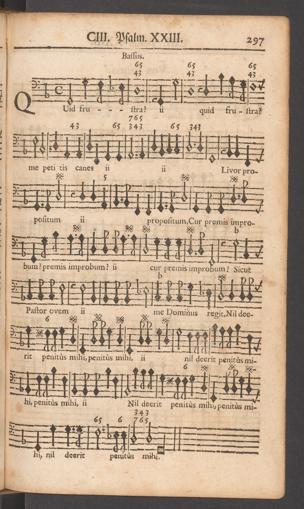 CIII. Psalm. XXIII. 297
Bassus.
65 65 65
43 43 43
QUid fru - - stra? ii quid fru - stra?
765
43 65 343 65 343
me peti tis canes ii ii Livor pro-
5
positum ii propositum, Cur premis impro-
b
bum? premis improbum? ii cur premis improbum? Sicut
b
Pastor ovem ii me Dominus regit, Nil dee-
6
rit penitùs mihi, penitùs mihi, ii nil deerit penitùs mi-
6
hi, penitùs mihi, ii Nil deerit penitùs mihi, penitùs mi-
343
65 6 765
hi, nil deerit penitùs mihi.